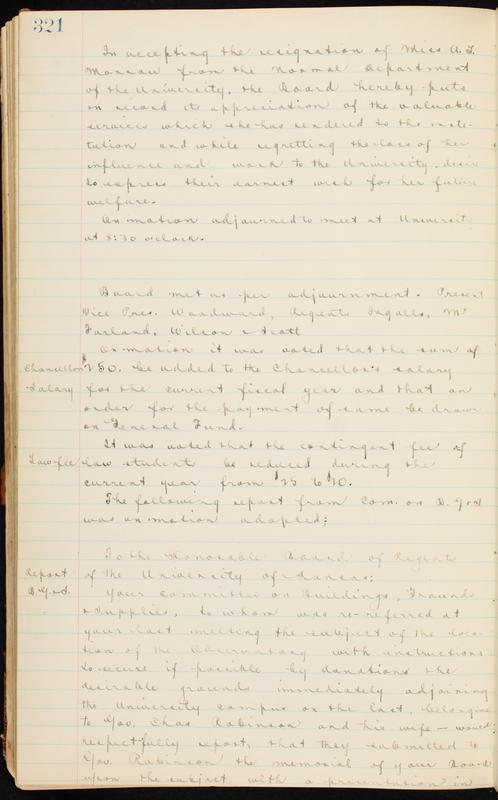 321
In accepting the resignation of Miss A. G.
from the Normal Department
of the University, the Board hereby puts
on record its appreciation of the valuable
services which she has rendered to the insti-
tution and while regretting the loss of her
influence and work to the University, desire
to express their earnest wish for her future
welfare.
On motion adjourned to meet at University
at 8:30 o'clock.
Board met as per adjournment. Present
Vice Pres. Woodward, Regents Ingalls, Mc
Farland, Wilson & Scott
On motion it was voted that the sum of
Chancellor's $250. be added to the Chancellor's salary
Salary for the current fiscal year and that an
order for the payment of same be drawn
on General Fund.
It was voted that the contingent fee of
Law-fee law student be reduced during the
current year from $25 to $10.
The following report from Com. on B. G & S
was on motion adopted;
To the Honorable Board of Regents
Report of the University of Kansas;
B. G. & S. Your committee on Buildings, Grounds
& Supplies, to whom was re-referred at
your last meeting the subject of the loca-
tion of the Observatory with instructions
to secure if possible by donations the
desirable grounds immediately adjoining
the University campus on the East, belonging
to Gov. Chas Robinson and his wife — would
respectfully report, that they submitted to
Gov. Robinson the memorial of your Board
upon the subject with a presentation in